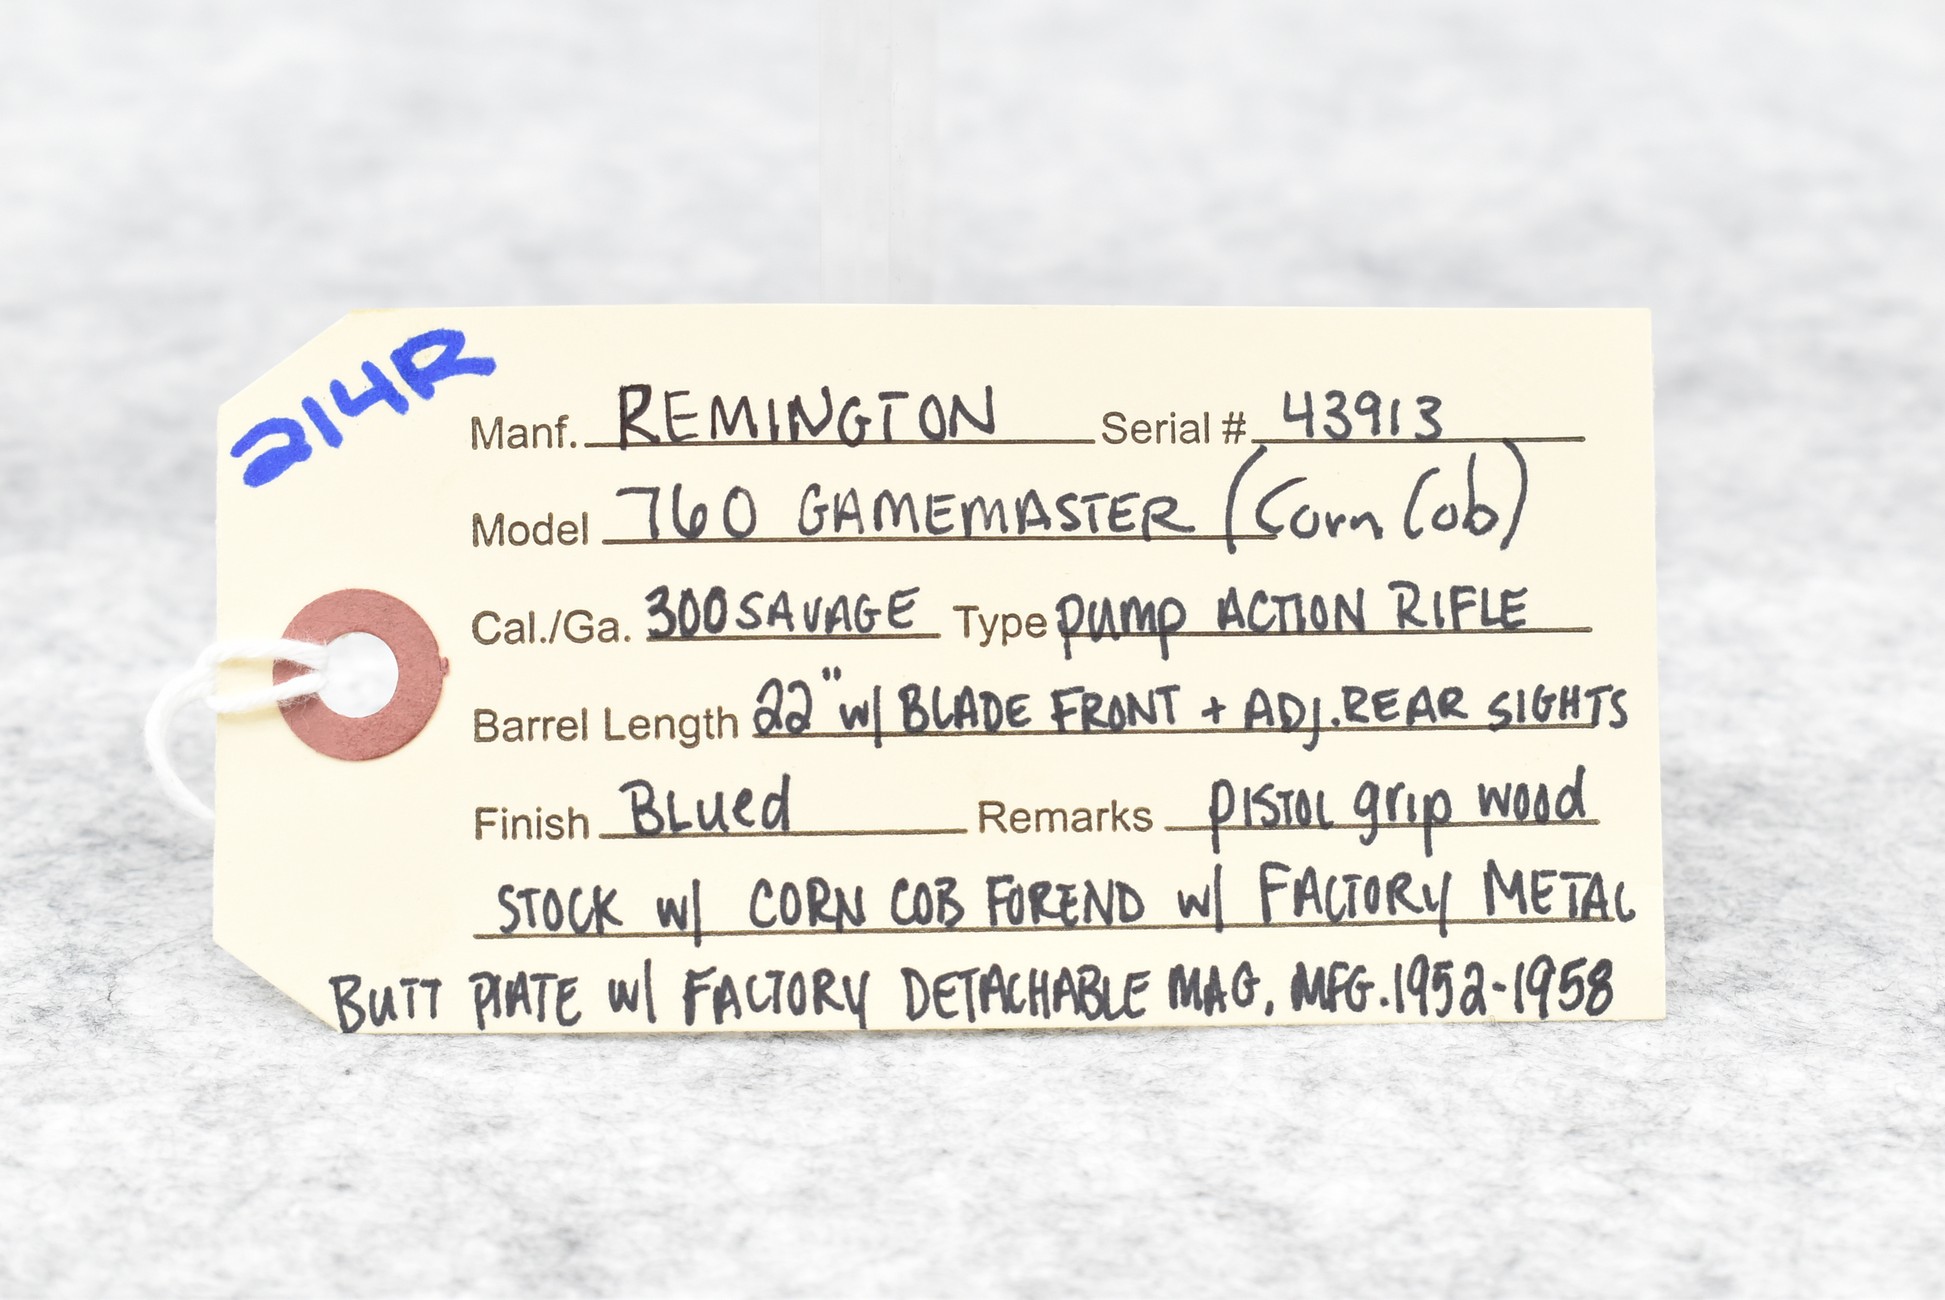 214R
Manf. REMINGTON Serial # 43913
Model 760 GAMEMASTER (Corn Cob)
Cal./Ga. 300 SAVAGE Type pump ACTION RIFLE
Barrel Length 22" w/ BLADE FRONT + ADJ. REAR SIGHTS
Finish BLued Remarks PISTOL grip wood
STOCK w/ CORN COB FOREND w/ FACTORY METAL
BUTT PLATE w/ FACTORY DETACHABLE MAG, MFG. 1952-1958